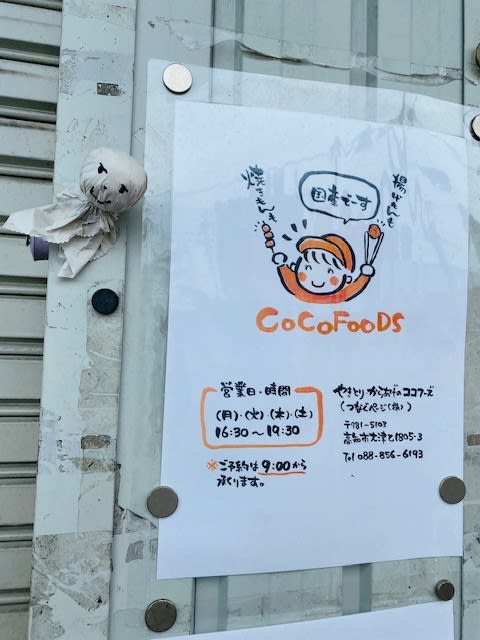 焼きもんも
揚げもんも
国産でーす
COCOFOODS
営業日・時間
(月)・(火)・(木)・(土)
16:30〜19:30
※ご予約は9:00から
承ります。
やきとり・からあげのココフーズ
(つなぐページ(株))
〒781-5103
高知市大津乙1805-3
Tel 088-856-6193